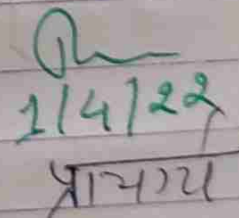 1/4/22
प्राचार्य